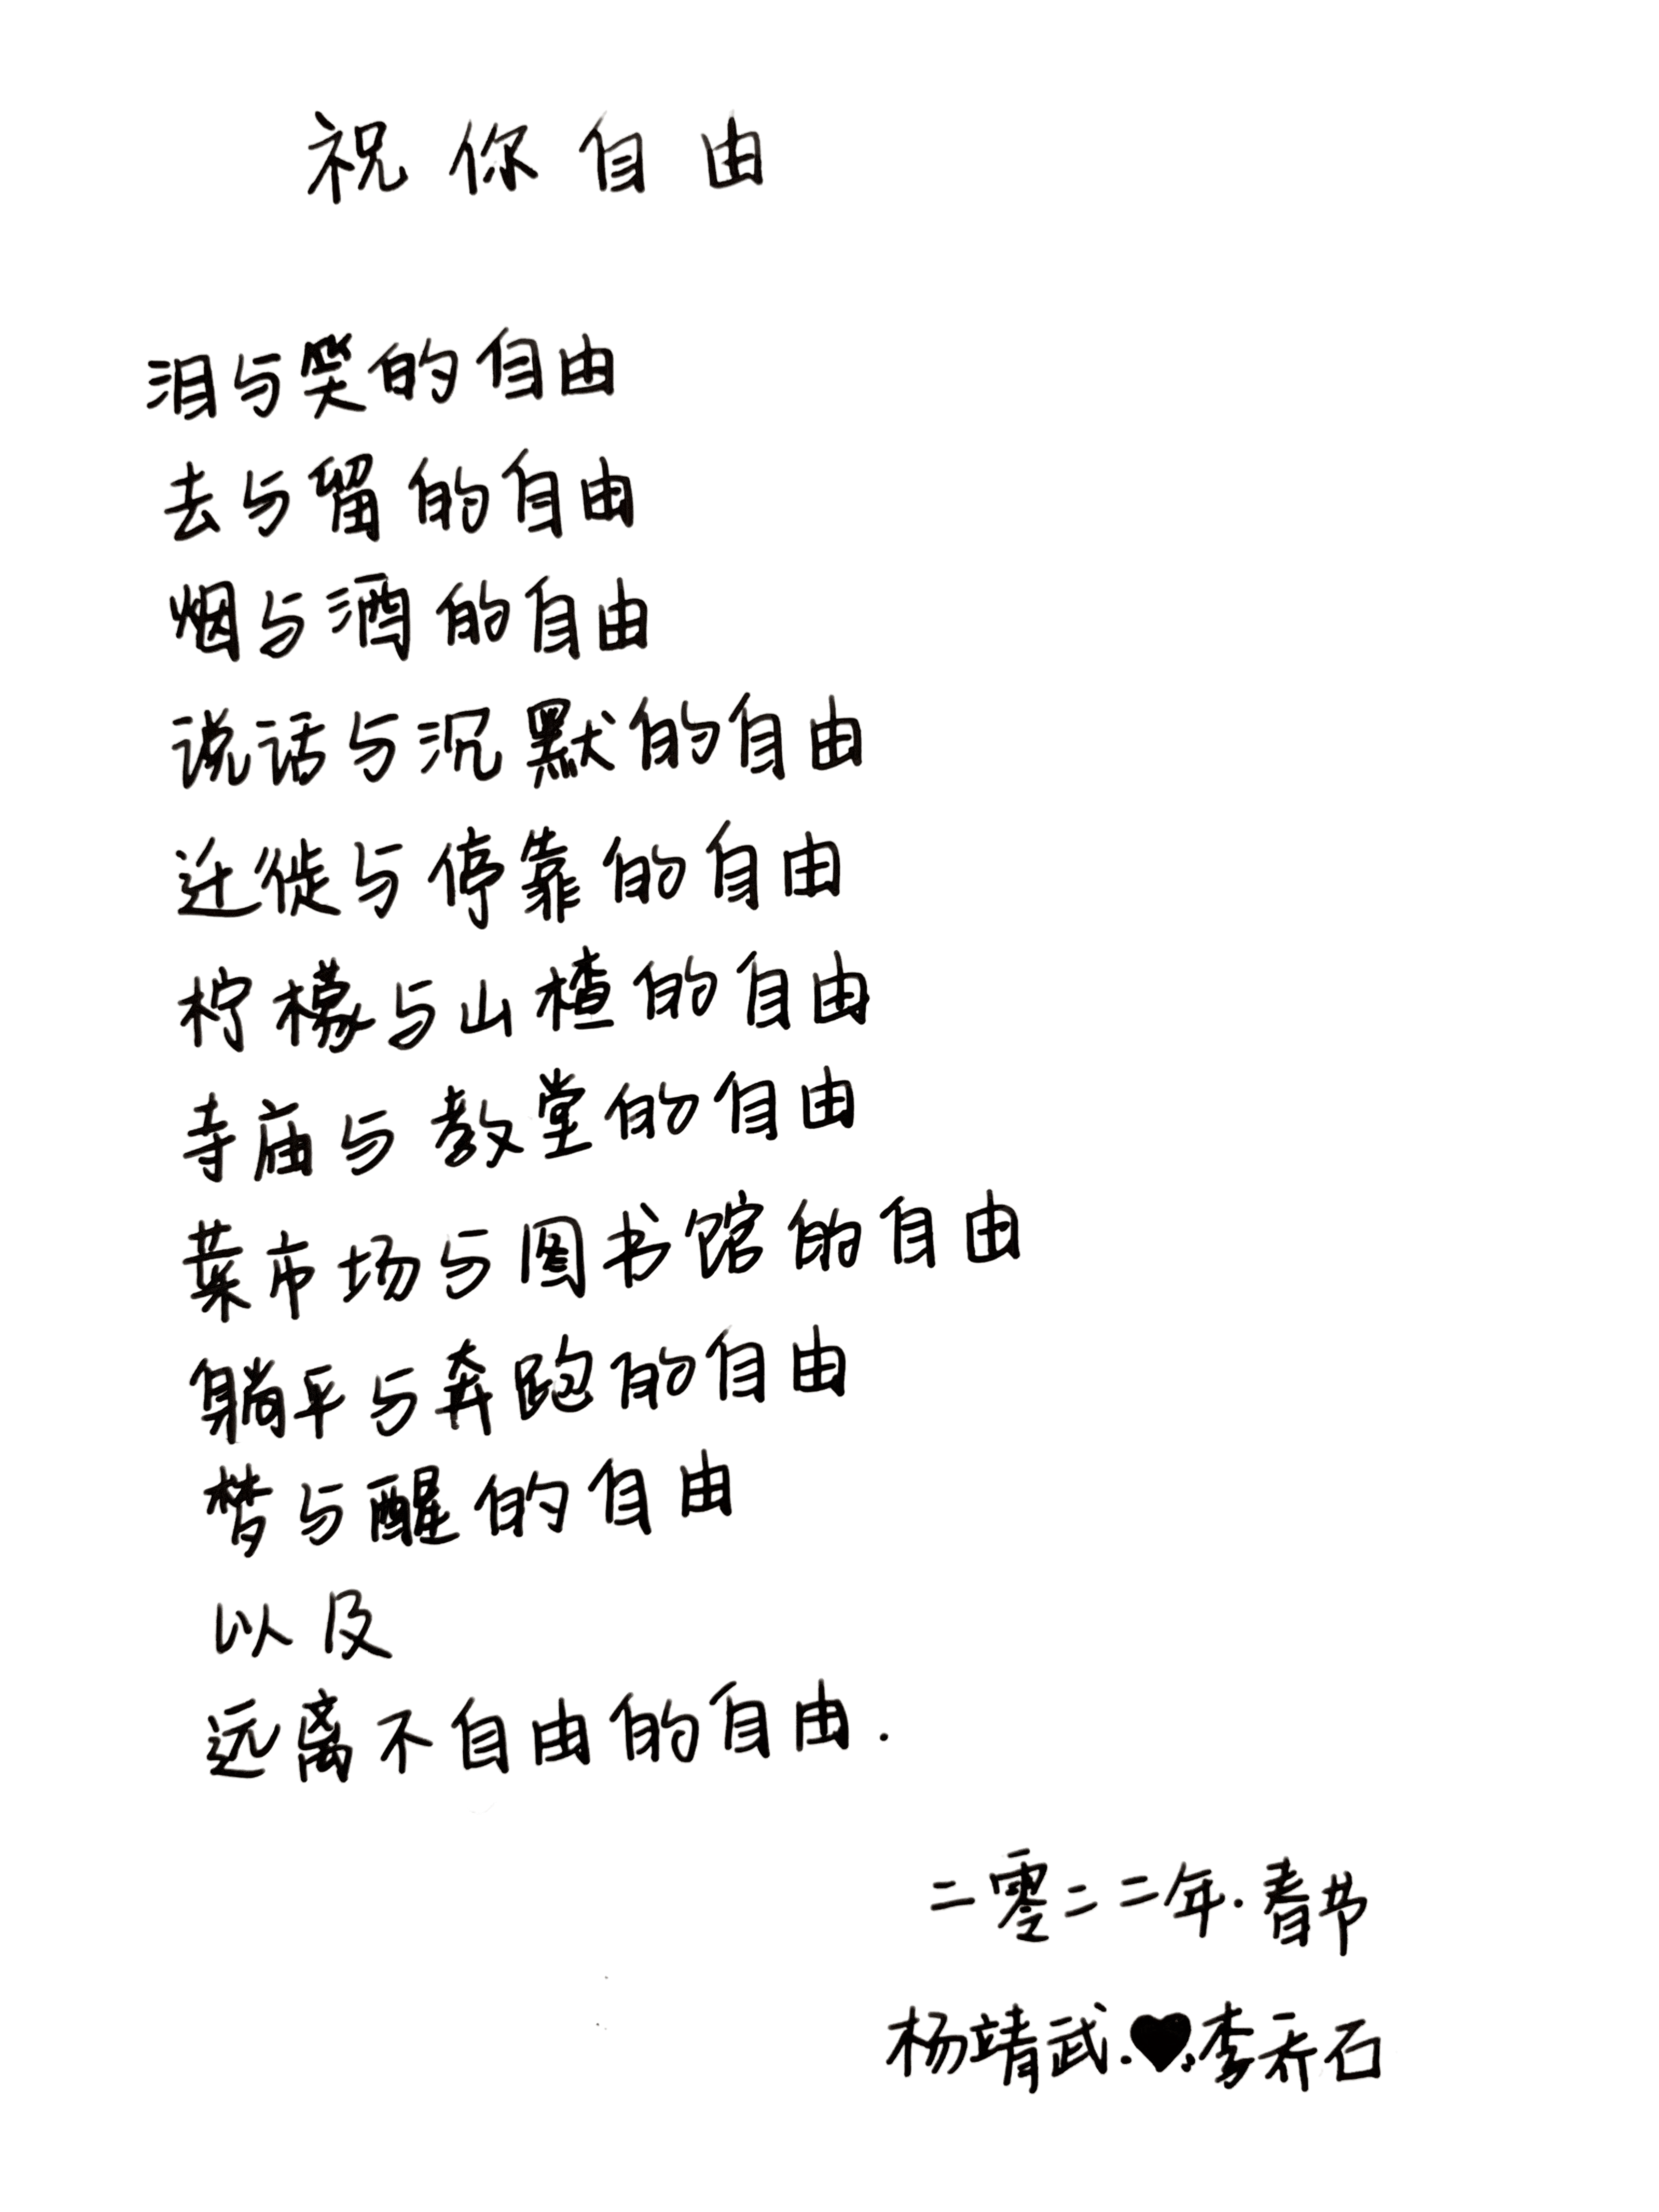 祝你自由
泪与笑的自由
去与留的自由
烟与酒的自由
说话与沉默的自由
迁徙与停靠的自由
柠檬与山楂的自由
寺庙与教堂的自由
菜市场与图书馆的自由
躺平与奔跑的自由
梦与醒的自由
以及
远离不自由的自由.
二零二二年.春节
杨靖武.♥.李乔石